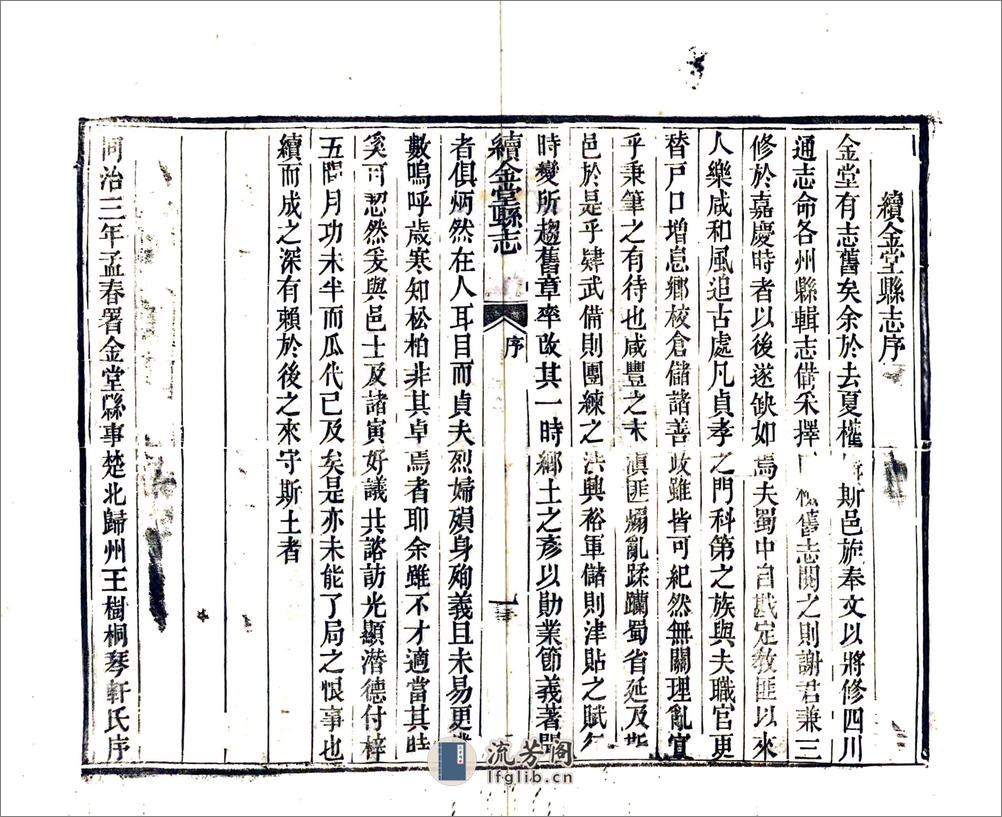 續金堂縣志序
金堂有志舊矣余於去夏權斯邑旋奉文以將修四川
通志命各州縣輯志備采擇舊志閱之則謝君兼三
修於嘉慶時者以後遂缺如焉夫蜀中自戡定教匪以來
人樂咸和風追古處凡貞孝之門科第之族與夫職官更
替戸口增息鄉校倉儲諸善政雖皆可紀然無關理亂宜
乎秉筆之有待也咸豐之末滇匪煽亂蹂躪蜀省延及
邑於是乎肄武備則團練之法興裕軍儲則津貼之賦
時變所趨舊章率改其一時鄉土之彥以勛業節義著
續金堂縣志
序
者俱炳然在人耳目而貞夫烈婦殞身殉義且未易更
數嗚呼歲寒知松柏非其卓焉者耶余雖不才適當其時
奚可恝然爰與邑士及諸寅好議共諮訪光顯潛德付梓
五閱月功未半而瓜代已及矣是亦未能了局之恨事也
續而成之深有賴於後之來守斯土者
同治三年孟春署金堂縣事楚北歸州王樹桐琴軒氏序
流芳閣
lfglib.cn